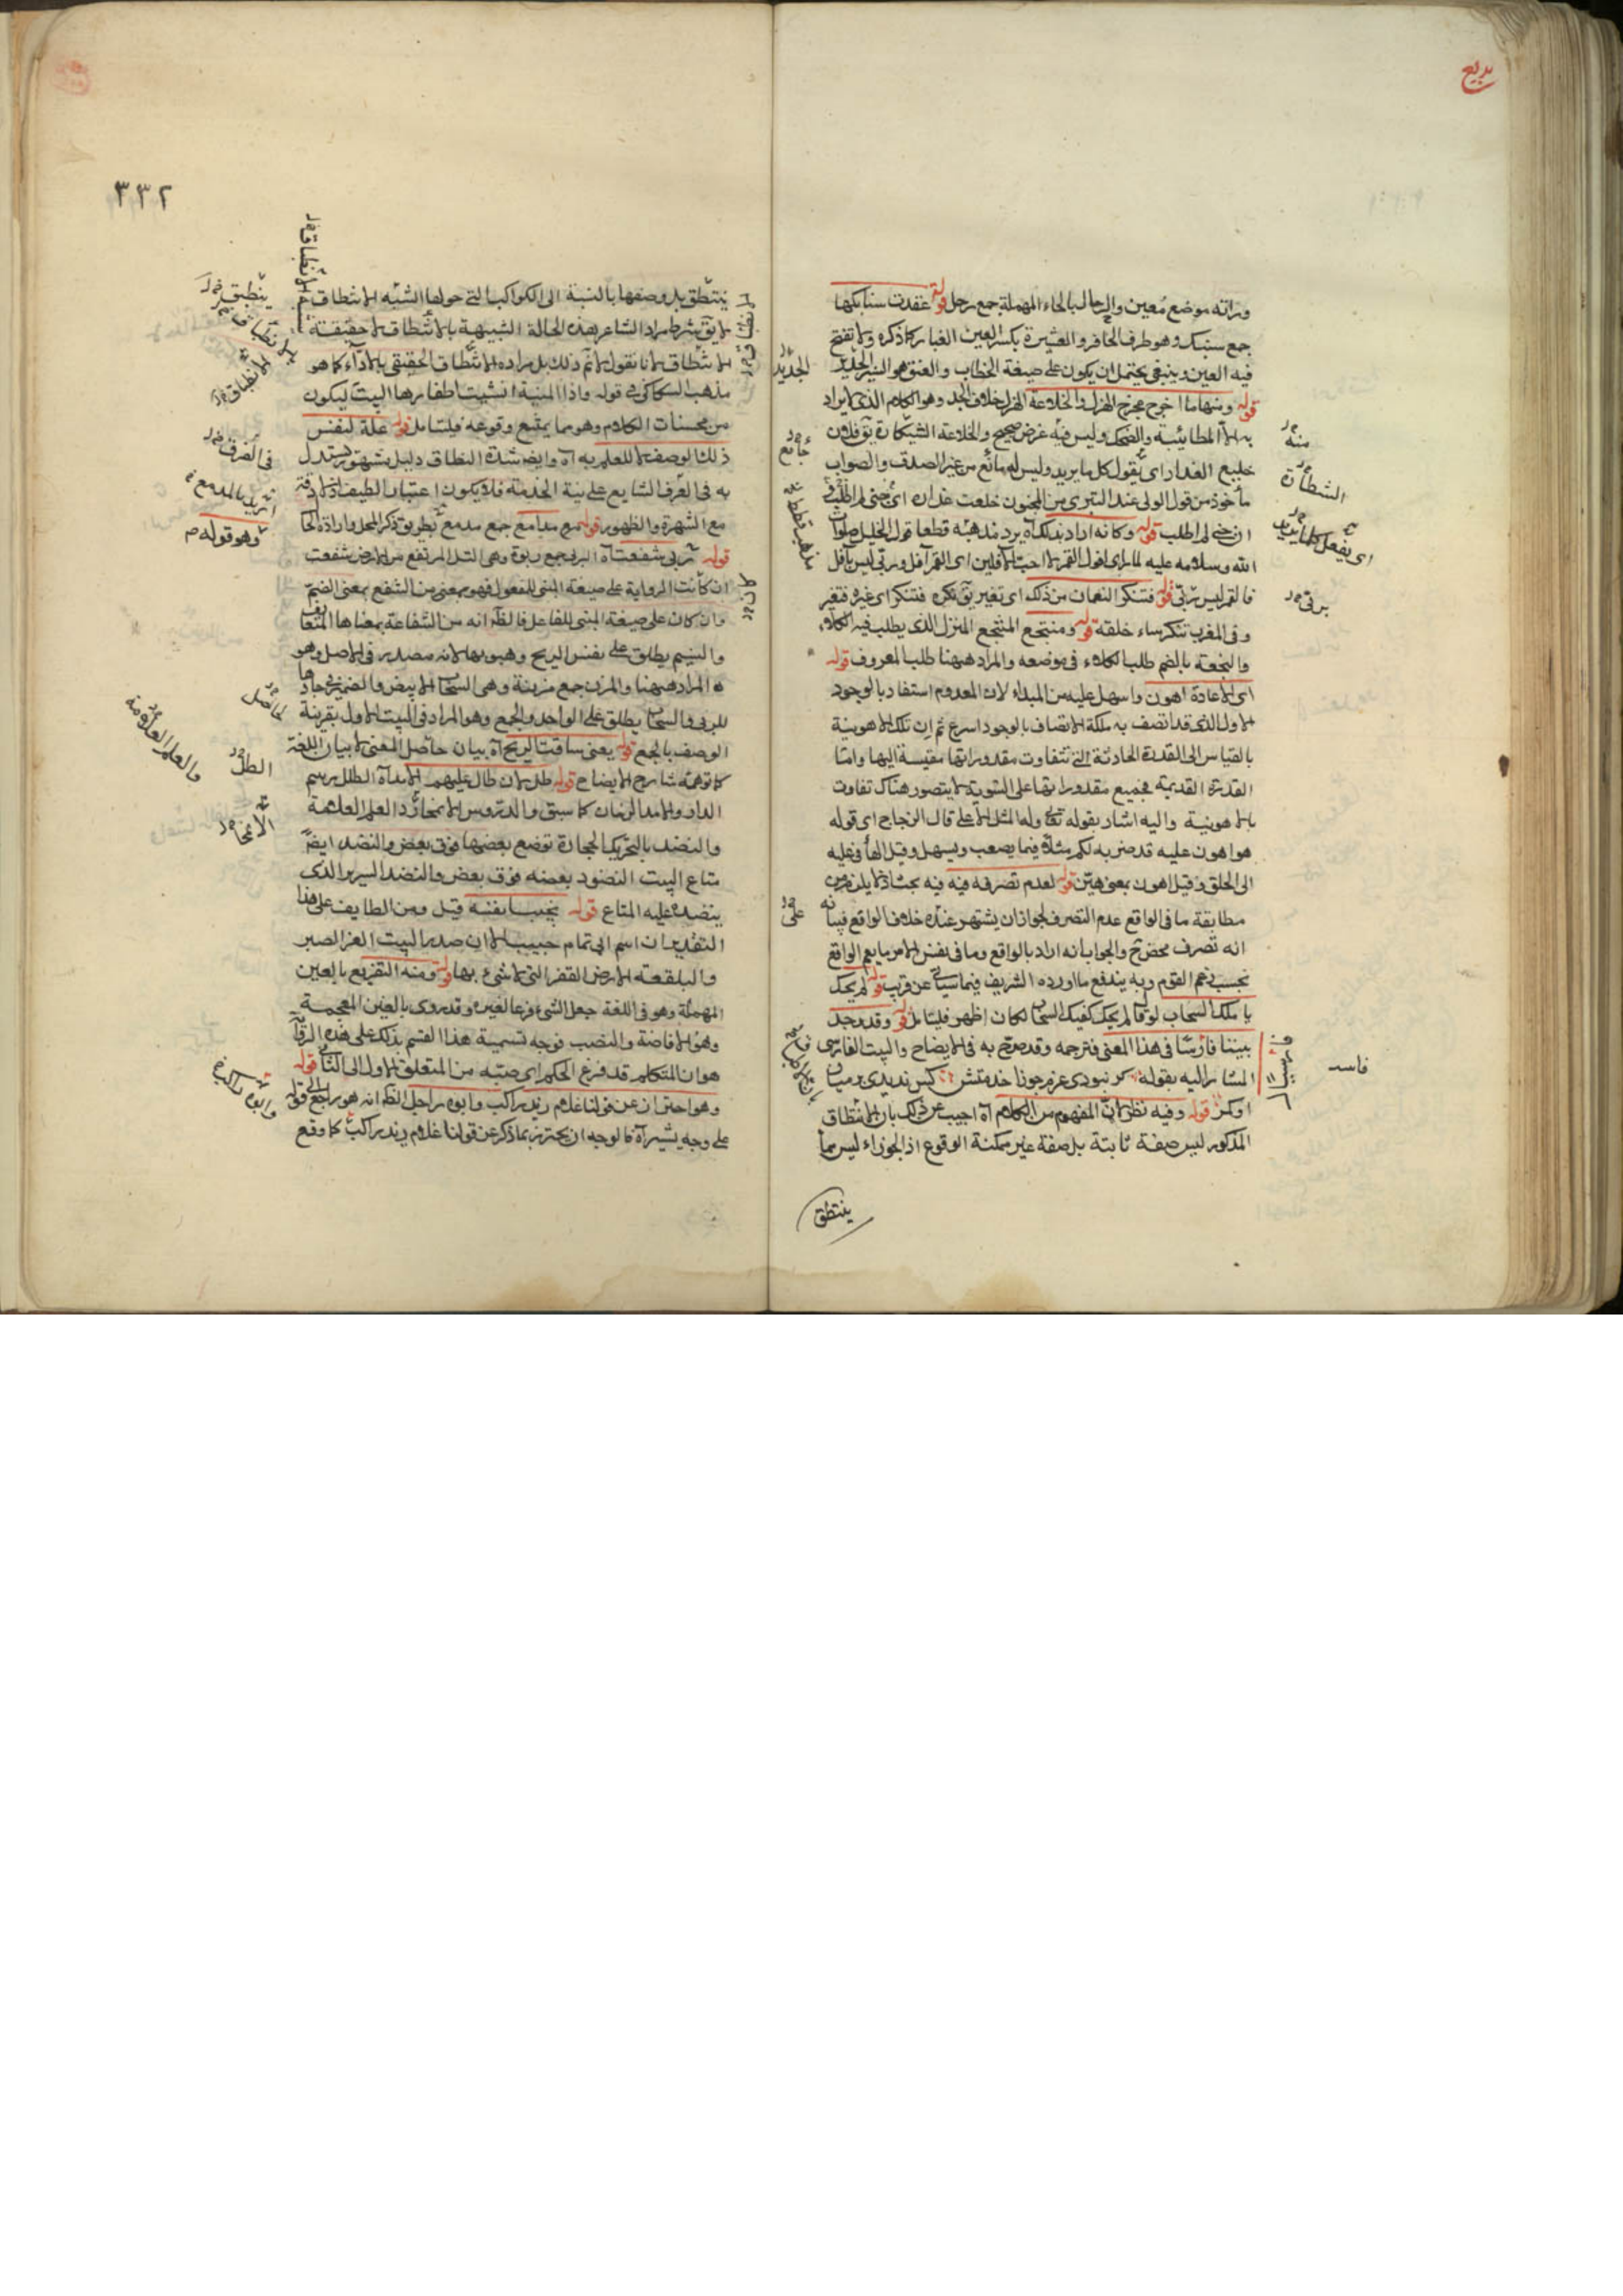 بديع
وراته موضع معين والرحال بالحاء المهملة جمع رحل قوله عقدت سنابكها
جمع سنبك وهو طرف الحافر والعثيرة بكسر العين الغبار كما ذكره ولا تفتح
فيه العين وينبغي يحتمل ان يكون على صيغة الخطاب والعنق هو السير الجديد
قوله ومنها ما اخرج مخرج الهزل والخلاعة الهزل خلاف الجد وهو الكلام الذي لا يراد
به الا المطايبة والضحك وليس فيه غرض صحيح والخلاعة يق فلان
خليع العذار اي يقول كل ما يريد وليس له مانع من غير الصدق والصواب
مأخوذ من قول الولي عند التبري من المجنون خلعت عذاره اي
ان جنى لم اطلب قوله وكانه اراد بذلك آه يرد مذهبه قطعا قول الخليل صلوات
الله وسلامه عليه لما رأى افول القمر لا احب الآفلين اي القمر آفل وربي ليس بآفل
فالقمر ليس بربي قوله فتنكر النعمان من ذلك اي تغير يق نكره فتنكر اي غيره فتغير
وفي المغرب تنكر ساء خلقه قوله ومنتجع المنتجع المنزل الذي يطلب فيه الكلاء
والنجعة بالضم طلب الكلاء في موضعه والمراد ههنا طلب المعروف قوله
اي الاعادة اهون واسهل عليه من المبداء لان المعدوم استفاد بالوجود
الاول الذي قد اتصف به ملكة الاتصاف بالوجود اسرع ثم ان تلك الاهونية
بالقياس الى القدرة الحادثة التي تتفاوت مقدوراتها مقيسة اليها واما
القدرة القديمة فجميع مقدوراتها على السوية لا يتصور هناك تفاوت
بالاهونية واليه اشار بقوله تعالى وله المثل الاعلى قال الزجاج اي قوله
هو اهون عليه قد ضربه لكم مثلا فيما يصعب ويسهل وقيل الهاء في عليه
الى الخلق وقيل اهون بمعنى هين قوله لعدم تصرفه فيه فيه بحث اذ لا يلزم من
مطابقة ما في الواقع عدم التصرف لجواز ان يشتهر عنده خلاف الواقع فبيانه
انه تصرف محض والجواب انه اراد بالواقع وما في نفس الامر ما يعم الواقع
بحسب زعم القوم وبه يندفع ما اورده الشريف فيما سيأتي عن قريب قوله لم يحك
يا ملكا السحاب لو قال لم يحك كفيك السحاب لكان اظهر فليتأمل قوله وقد وجد
بيتنا فارسيا في هذا المعنى فترجمه وقد صرح به في الايضاح والبيت الفارسي
المشار اليه بقوله كر نبودى عزم جوزا خدمتش كس نديدى بر ميان
او كمر قوله وفيه نظر لان المفهوم من الكلام آه اجيب عن ذلك بان الانتطاق
المذكور ليس صفة ثابتة بل صفة غير ممكنة الوقوع اذ الجوزاء ليس مما
ينتطق
الجديد
جامع
منه
الشطارة
اي يفعل كلما يريد
بربي
على
فاسد
٣٣٢
ينتطق بل وصفها بالنسبة الى الكواكب التي حولها الشبه الانتطاق
لا يق شرط مراد الشاعر بهذه الحالة الشبيهة بالانتطاق لا حقيقة
الانتطاق لانا نقول لا نم ذلك بل مراده الانتطاق الحقيقي بالادعاء كما هو
مذهب السكاكي في قوله واذا المنية انشبت اظفارها البيت ليكون
من محسنات الكلام وهو مما يمتنع وقوعه فليتأمل قوله علة لنفس
ذلك الوصف لا للعلم به آه وايضا شدة النطاق دليل مشهور يستدل
به في العرف الشايع على نية الخدمة فلا يكون اعتبار لطيف
مع الشهرة والظهور قوله مدامع جمع مدمع بطريق ذكر المحل وارادة الحال
قوله ربي شفعت آه الربى جمع ربوة وهي التل المرتفع من الارض شفعت
ان كانت الرواية على صيغة المبني للمفعول فهو بمعنى من الشفع بمعنى الضم
وان كان على صيغة المبني للفاعل فالظاهر انه من الشفاعة بمعناها المتعارف
والنسيم يطلق على نفس الريح وهبوبها لانه مصدر في الاصل وهو
المراد ههنا والمزن جمع مزنة وهي السحاب الابيض والضمير في جادها
للربى والسحاب يطلق على الواحد والجمع وهو المراد في البيت الاول بقرينة
الوصف بالجمع قوله يعني ساقت الريح آه بيان حاصل المعنى لا بيان اللغة
كما توهمه شارح الايضاح قوله طلل لان طال عليهم الامد آه الطلل رسم
الدار والامد الزمان كما سبق والدروس الانمحاء د العلم العلامة
والنضد بالتحريك الحجارة توضع بعضها فوق بعض والنضد ايضا
متاع البيت المنضود بعضه فوق بعض والنضد السرير الذي
ينضد عليه المتاع قوله بحبيبا نفسه قيل ومن الطايف على هذا
التقدير ان اسم ابي تمام حبيب الا ان صدر البيت العز الصبر
والبلقعة الارض القفر التي لا شيء بها قوله ومنه التفريع بالعين
المهملة وهو في اللغة جعل الشيء فرعا لغيره وقد روى بالغين المعجمة
وهو الافاضة والنصب فوجه تسمية هذا القسم بذلك على هذه الرواية
هو ان المتكلم قد فرغ الحكم اي صبه من المتعلق الاول الى الثاني قوله
وهو احتراز عن قولنا غلام زيد راكب وابوه راجل الظاهر انه هو راجع الى قوله
على وجه يشير آه فالوجه ان يحترز بما ذكر عن قولنا غلام زيد راكب كما وقع
الانطباق
ينطبق
الانطباق
في العرف
اريد بالمدمع
وهو قوله
كان
الحاصل
والعلم العلامة
الطلل
الانمحاء
وابوه راكب